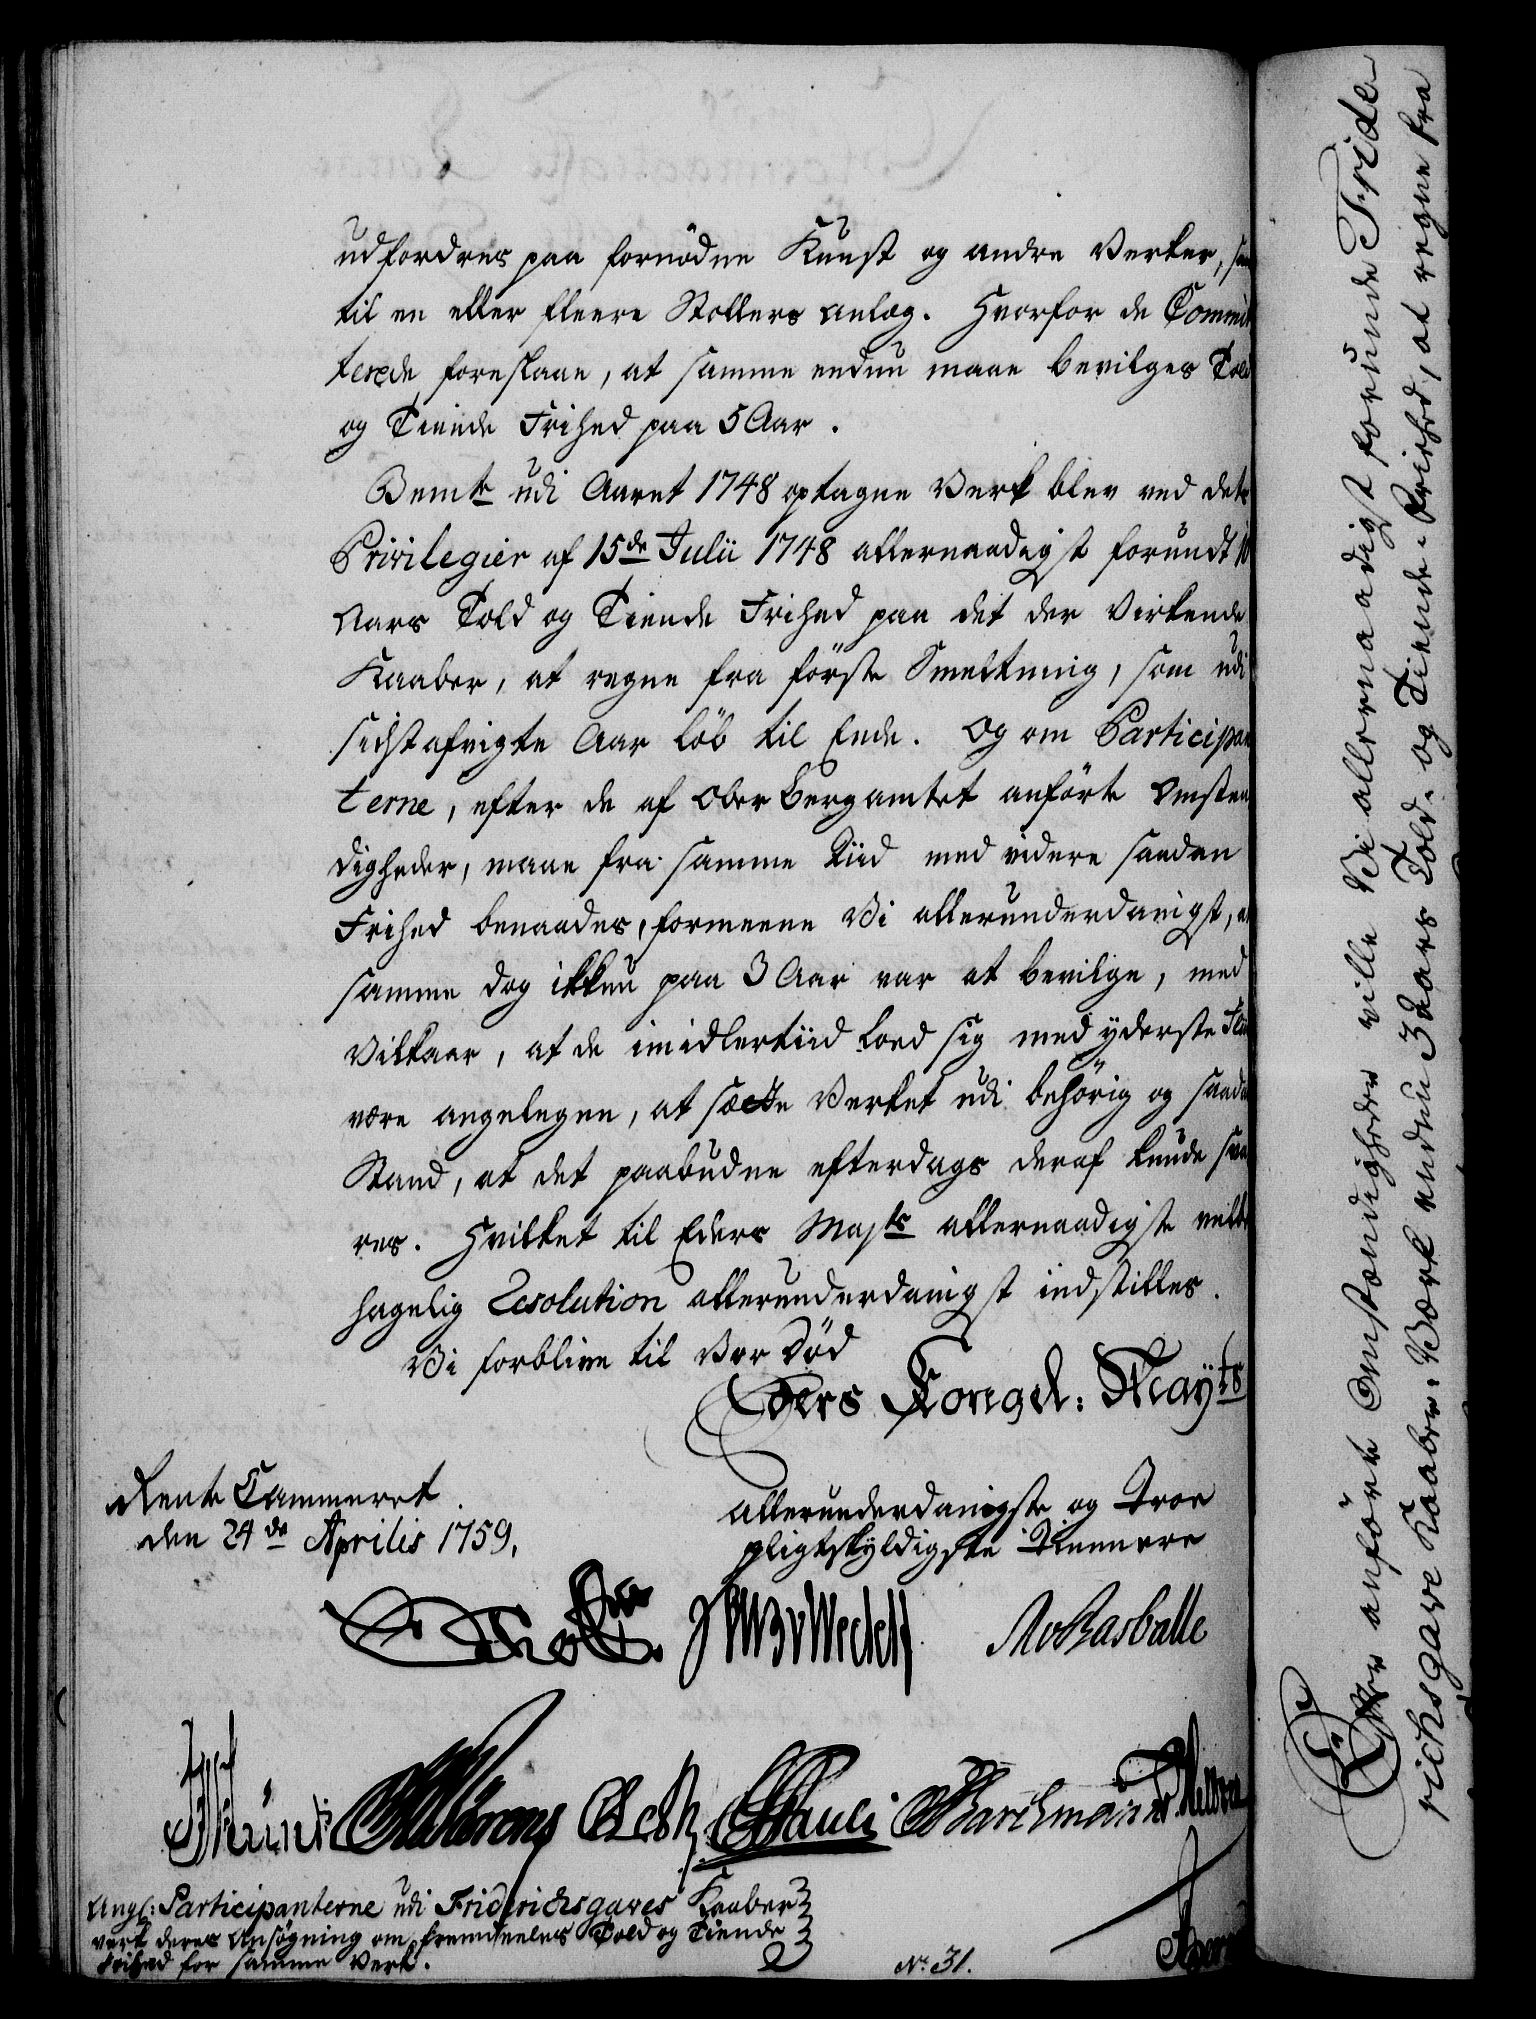 udfordres paa fornödne Kunst og andre Verker, saa
til en eller fleere Stollers anlæg. Hvorfor de Commit
terede foreslaae, at samme endnu maae bevilges Told
og Tiende Frihed paa 5 Aar.
Bemte udi Aaret 1748 optagne Verk blev ved dets
Privilegier af 15de Julii 1748 allernaadigst forundt 10
Aars Told og Tiende Frihed paa det der Virkende
Kaaber, at regne fra förste Smeltning, som udi
sidstafvigte Aar löb til Ende. Og om Participan
terne, efter de af Ober Bergamtet anförte Omstæn
digheder, maae fra samme Tiid med videre saadan
Frihed benaades, formeene Vi allerunderdanigst, at
samme dog ikkun paa 3 Aar var at bevilge, med
Vilkaar, at de imidlertiid loed sig med yderste Fliid
være angelegen, at sætte Verket udi behörig og saadan
Stand, at det paabudne efterdags deraf kunde sva
res. Hvilket til Eders Majts allernaadigste velbe
hagelig Resolution allerunderdanigst indstilles.
Vi forblive til Vor Död
Eders Kongel: Mayts
Rente Cammeret
den 24de Aprilis 1759.
allerunderdanigste og Troe
pligtskyldigste Tiennere
Holstein Wedell
Angl: Participanterne udi Friderichsgaves Kaaber
verk deres Ansögning om fremdeeles Told og Tiende
Frihed for samme Verk.
No. 31.
Efter anförte Omstændigheder ville Vi allernaadigst forunde Fride
richsgave Kaaber-Værk endnu 3 Aars Told- og Tiende-Friehed, at regne fra